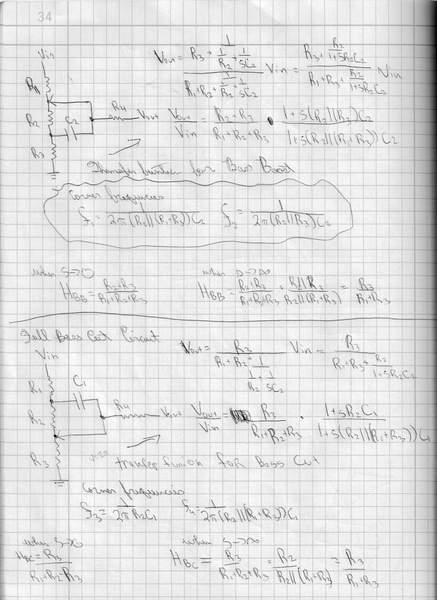 34
Vin
R1
R2
C2
R4
Vout
R3
Vout = (R3 + 1/(1/R2 + 1/(1/SC2))) / (R1+R2+ 1/(1/R2 + 1/(1/SC2))) Vin = (R3 + R2/(1+SR2C2)) / (R1+R3+ R2/(1+SR2C2)) Vin
Vout/Vin = (R2+R3)/(R1+R2+R3) · (1+S(R2||R3)C2)/(1+S(R2||(R1+R3))C2)
Transfer function for Bass Boost
Corner frequencies
f1 = 1/(2π(R2||(R1+R3))C2) f2 = 1/(2π(R2||R3)C2)
when S→0 when S→∞
HBB = (R2+R3)/(R1+R2+R3) HBB = (R2+R3)/(R1+R2+R3) · (R2||R3)/(R2||(R1+R3)) = R3/(R1+R3)
Full Bass Cut Circuit
Vin
R1
C1
R2
R4
Vout
R3
Vout = R3/(R1+R3+ 1/(1/R2 + 1/(1/SC2))) Vin = R3/(R1+R3+ R2/(1+SR2C2))
Vout/Vin = R3/(R1+R2+R3) · (1+SR2C1)/(1+S(R2||(R1+R3))C1)
transfer funion for Bass Cut
Corner frequencies
f3 = 1/(2πR2C1) f4 = 1/(2π(R2||(R1+R3))C1)
when when S→∞
HBC = R3/(R1+R2+R3) HBC = R3/(R1+R2+R3) · R2/(R2||(R1+R3)) = R3/(R1+R3)